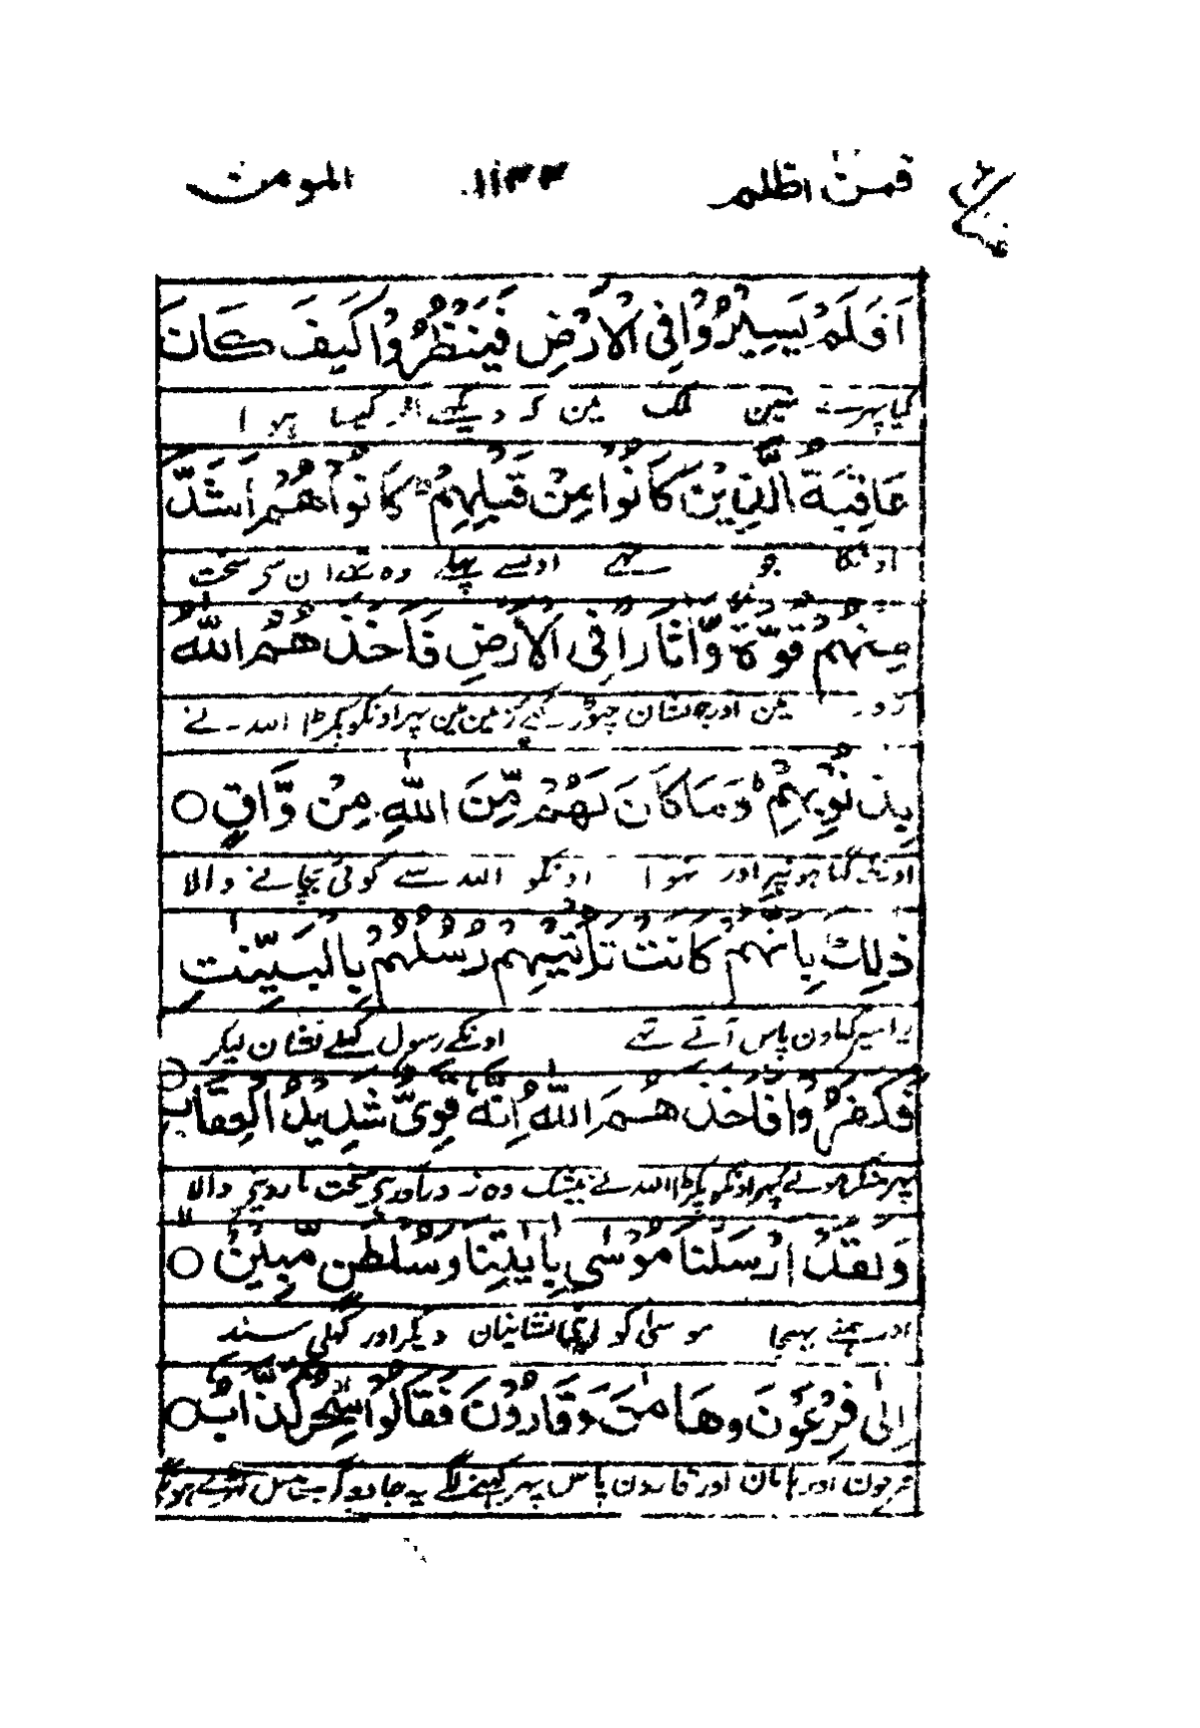 فمن اظلم ١١٣٣ المومن
اَفَلَمْ يَسِيْرُوْا فِى الْاَرْضِ فَيَنْظُرُوْا كَيْفَ كَانَ
کیا پہرے نہین ملک مین کہ دیکہتے آخر کیسا ہوا
عَاقِبَةُ الَّذِيْنَ كَانُوْا مِنْ قَبْلِهِمْ ؕ كَانُوْا هُمْ اَشَدَّ
اونکا جو تہے اونسے پہلے وہ تہے ان سے سخت
مِنْهُمْ قُوَّةً وَّاٰثَارًا فِى الْاَرْضِ فَاَخَذَهُمُ اللّٰهُ
زور مین اور جو نشان چہوڑ گئے زمین مین پہر اونکو پکڑا اللہ نے
بِذُنُوْبِهِمْ ؕ وَمَا كَانَ لَهُمْ مِّنَ اللّٰهِ مِنْ وَّاقٍ ○
اونکے گناہونپر اور نہوا اونکو اللہ سے کوئی بچانے والا
ذٰلِكَ بِاَنَّهُمْ كَانَتْ تَّاْتِيْهِمْ رُسُلُهُمْ بِالْبَيِّنٰتِ
یہ اسپر کہ اون پاس آتے تہے اونکے رسول کہلے نشان لیکر
فَكَفَرُوْا فَاَخَذَهُمُ اللّٰهُ اِنَّهٗ قَوِىٌّ شَدِيْدُ الْعِقَابِ ○
پہر منکر ہوئے پہر اونکو پکڑا اللہ نے بیشک وہ زوراور ہے سخت مار دینے والا
وَلَقَدْ اَرْسَلْنَا مُوْسٰى بِاٰيٰتِنَا وَسُلْطٰنٍ مُّبِيْنٍ ○
اور ہمنے بہیجا موسیٰ کو اپنی نشانیان دیکر اور کہلی سند
اِلٰى فِرْعَوْنَ وَهَامٰنَ وَقَارُوْنَ فَقَالُوْا سٰحِرٌ كَذَّابٌ ○
فرعون اور ہامان اور قارون پاس پہر کہنے لگے یہ جادوگر ہے